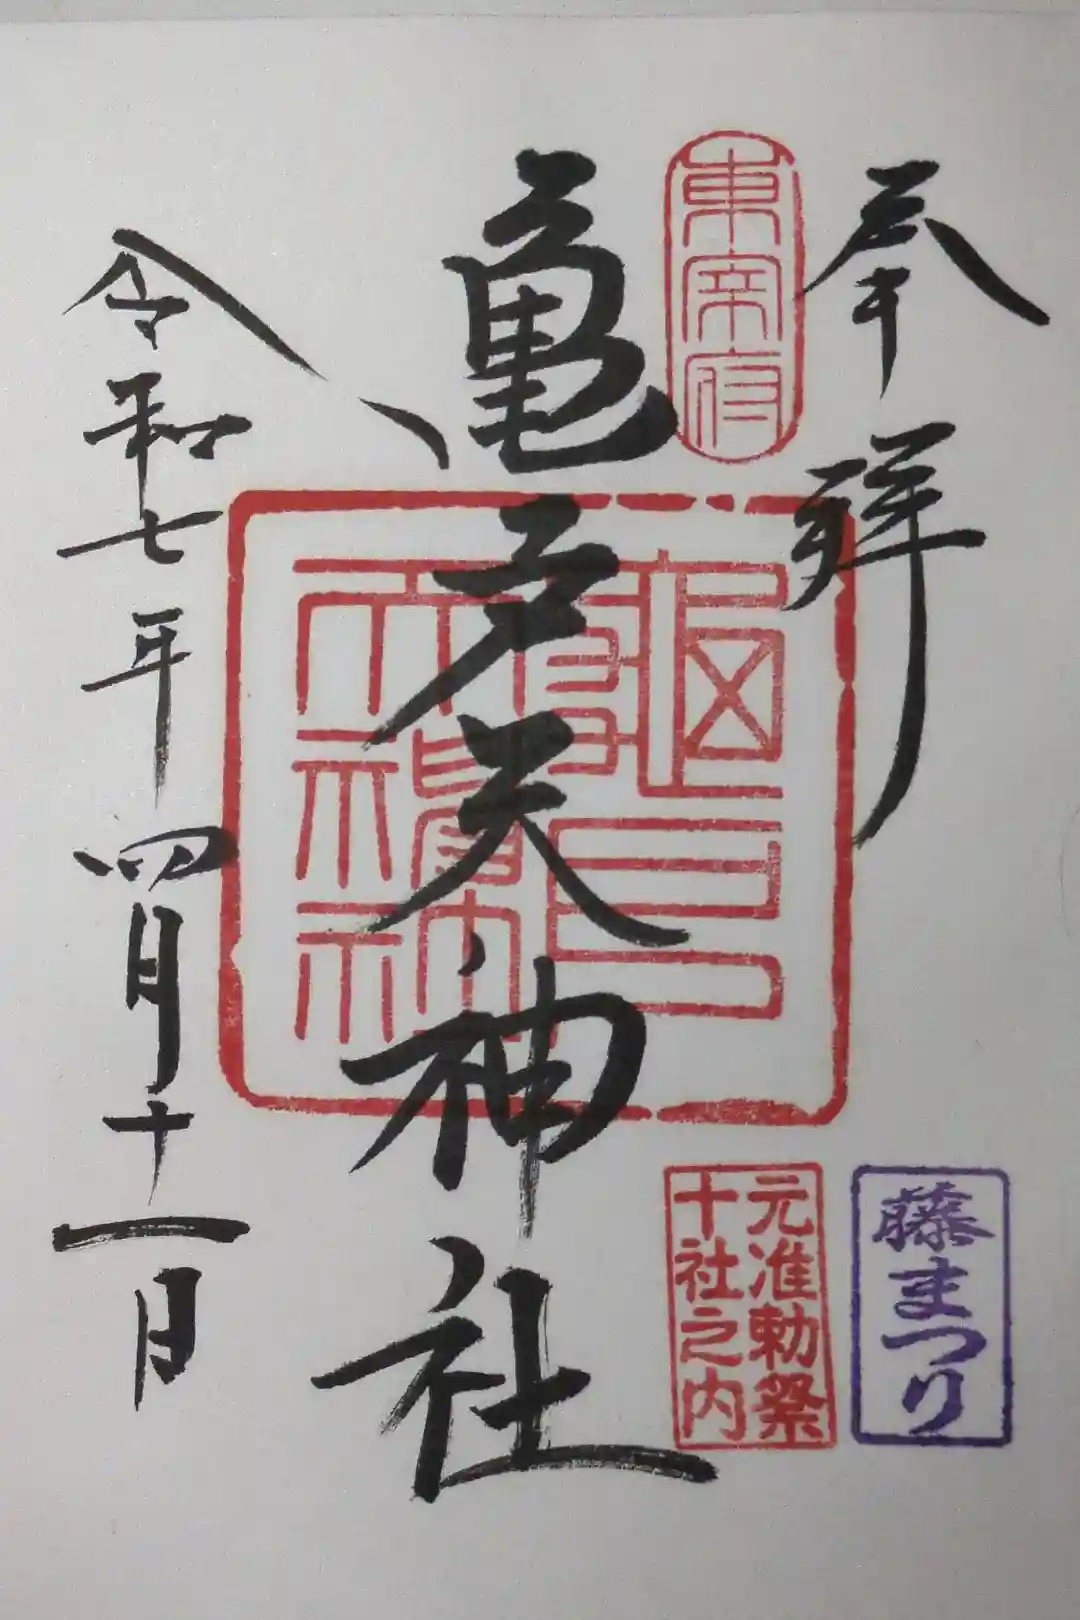 奉拝
東宰府
亀戸天神社
令和七年四月十一日
藤まつり
元准勅祭
十社之内